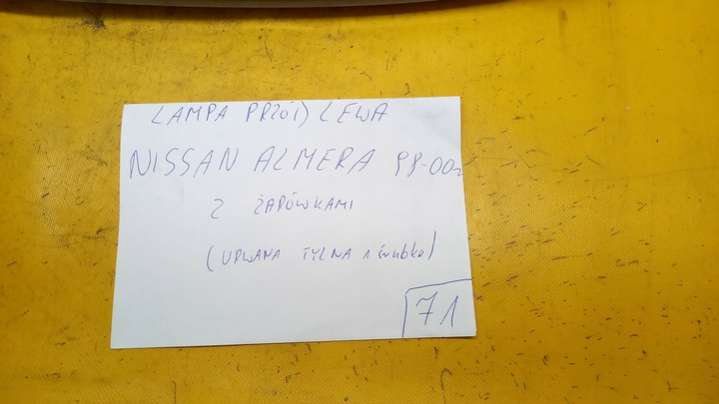 LAMPA PRZÓD LEWA
NISSAN ALMERA 98-00r
Z ŻARÓWKAMI
(URWANA TYLNA śrubka)
71